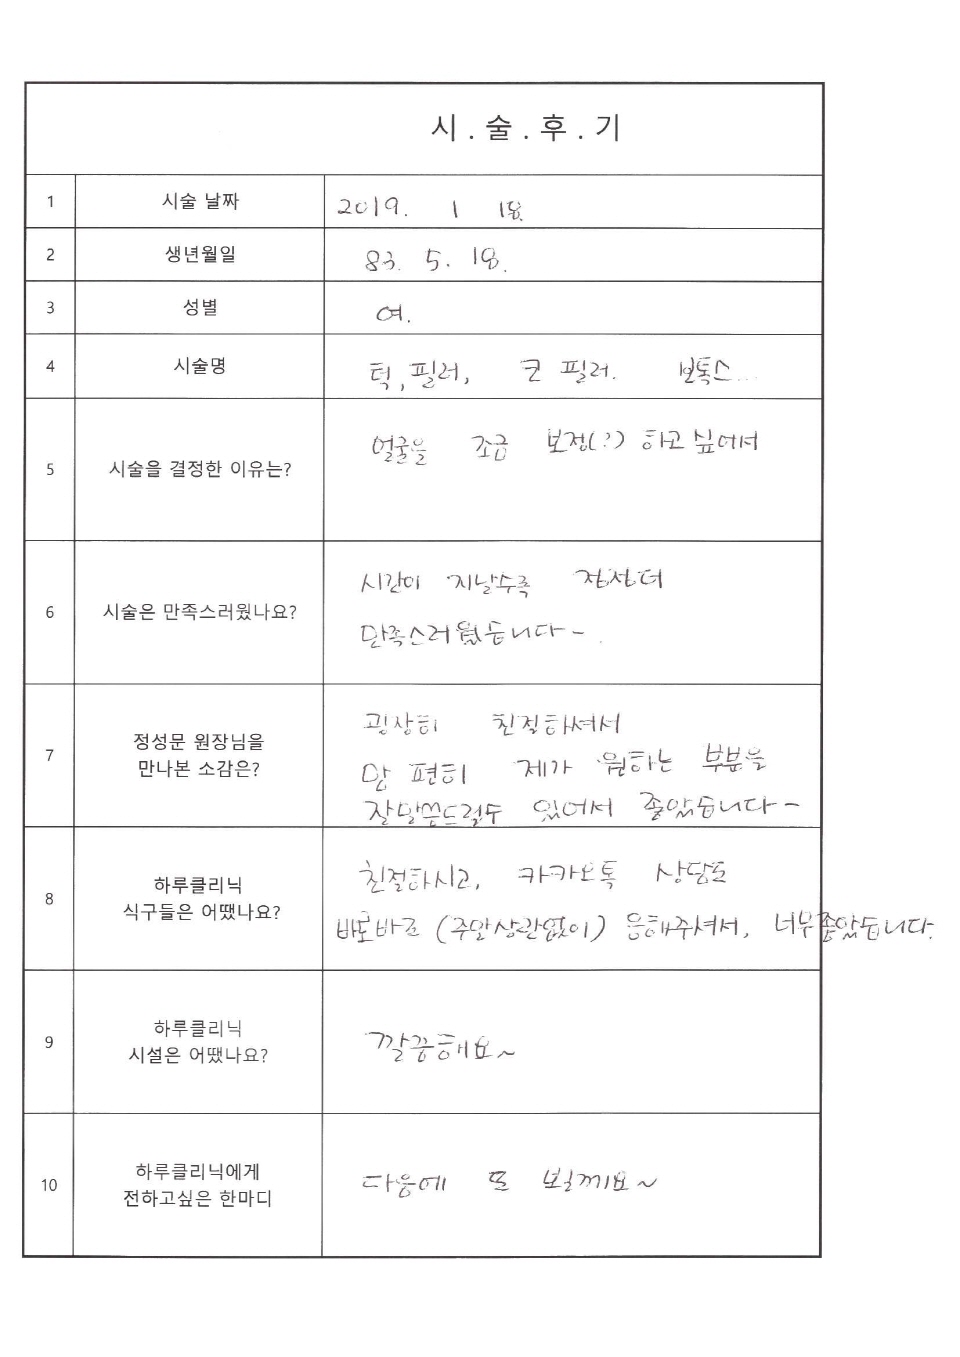 시.술.후.기
1 시술 날짜 2019. 1 18.
2 생년월일 83. 5. 18.
3 성별 여.
4 시술명 턱,필러, 코 필러. 보톡스...
5 시술을 결정한 이유는? 얼굴을 조금 보정(?) 하고싶어서
6 시술은 만족스러웠나요?
시간이 지날수록 점점더
만족스러웠습니다~.
7 정성문 원장님을
만나본 소감은?
굉장히 친절하셔서
맘 편히 제가 원하는 부분을
잘말씀드릴수 있어서 좋았습니다~
8 하루클리닉
식구들은 어땠나요?
친절하시고, 카카오톡 상담도
바로바로 (주말상관없이) 응해주셔서, 너무좋았습니다.
9 하루클리닉
시설은 어땠나요?
깔끔해요~
10 하루클리닉에게
전하고싶은 한마디
다음에 또 뵐께요~